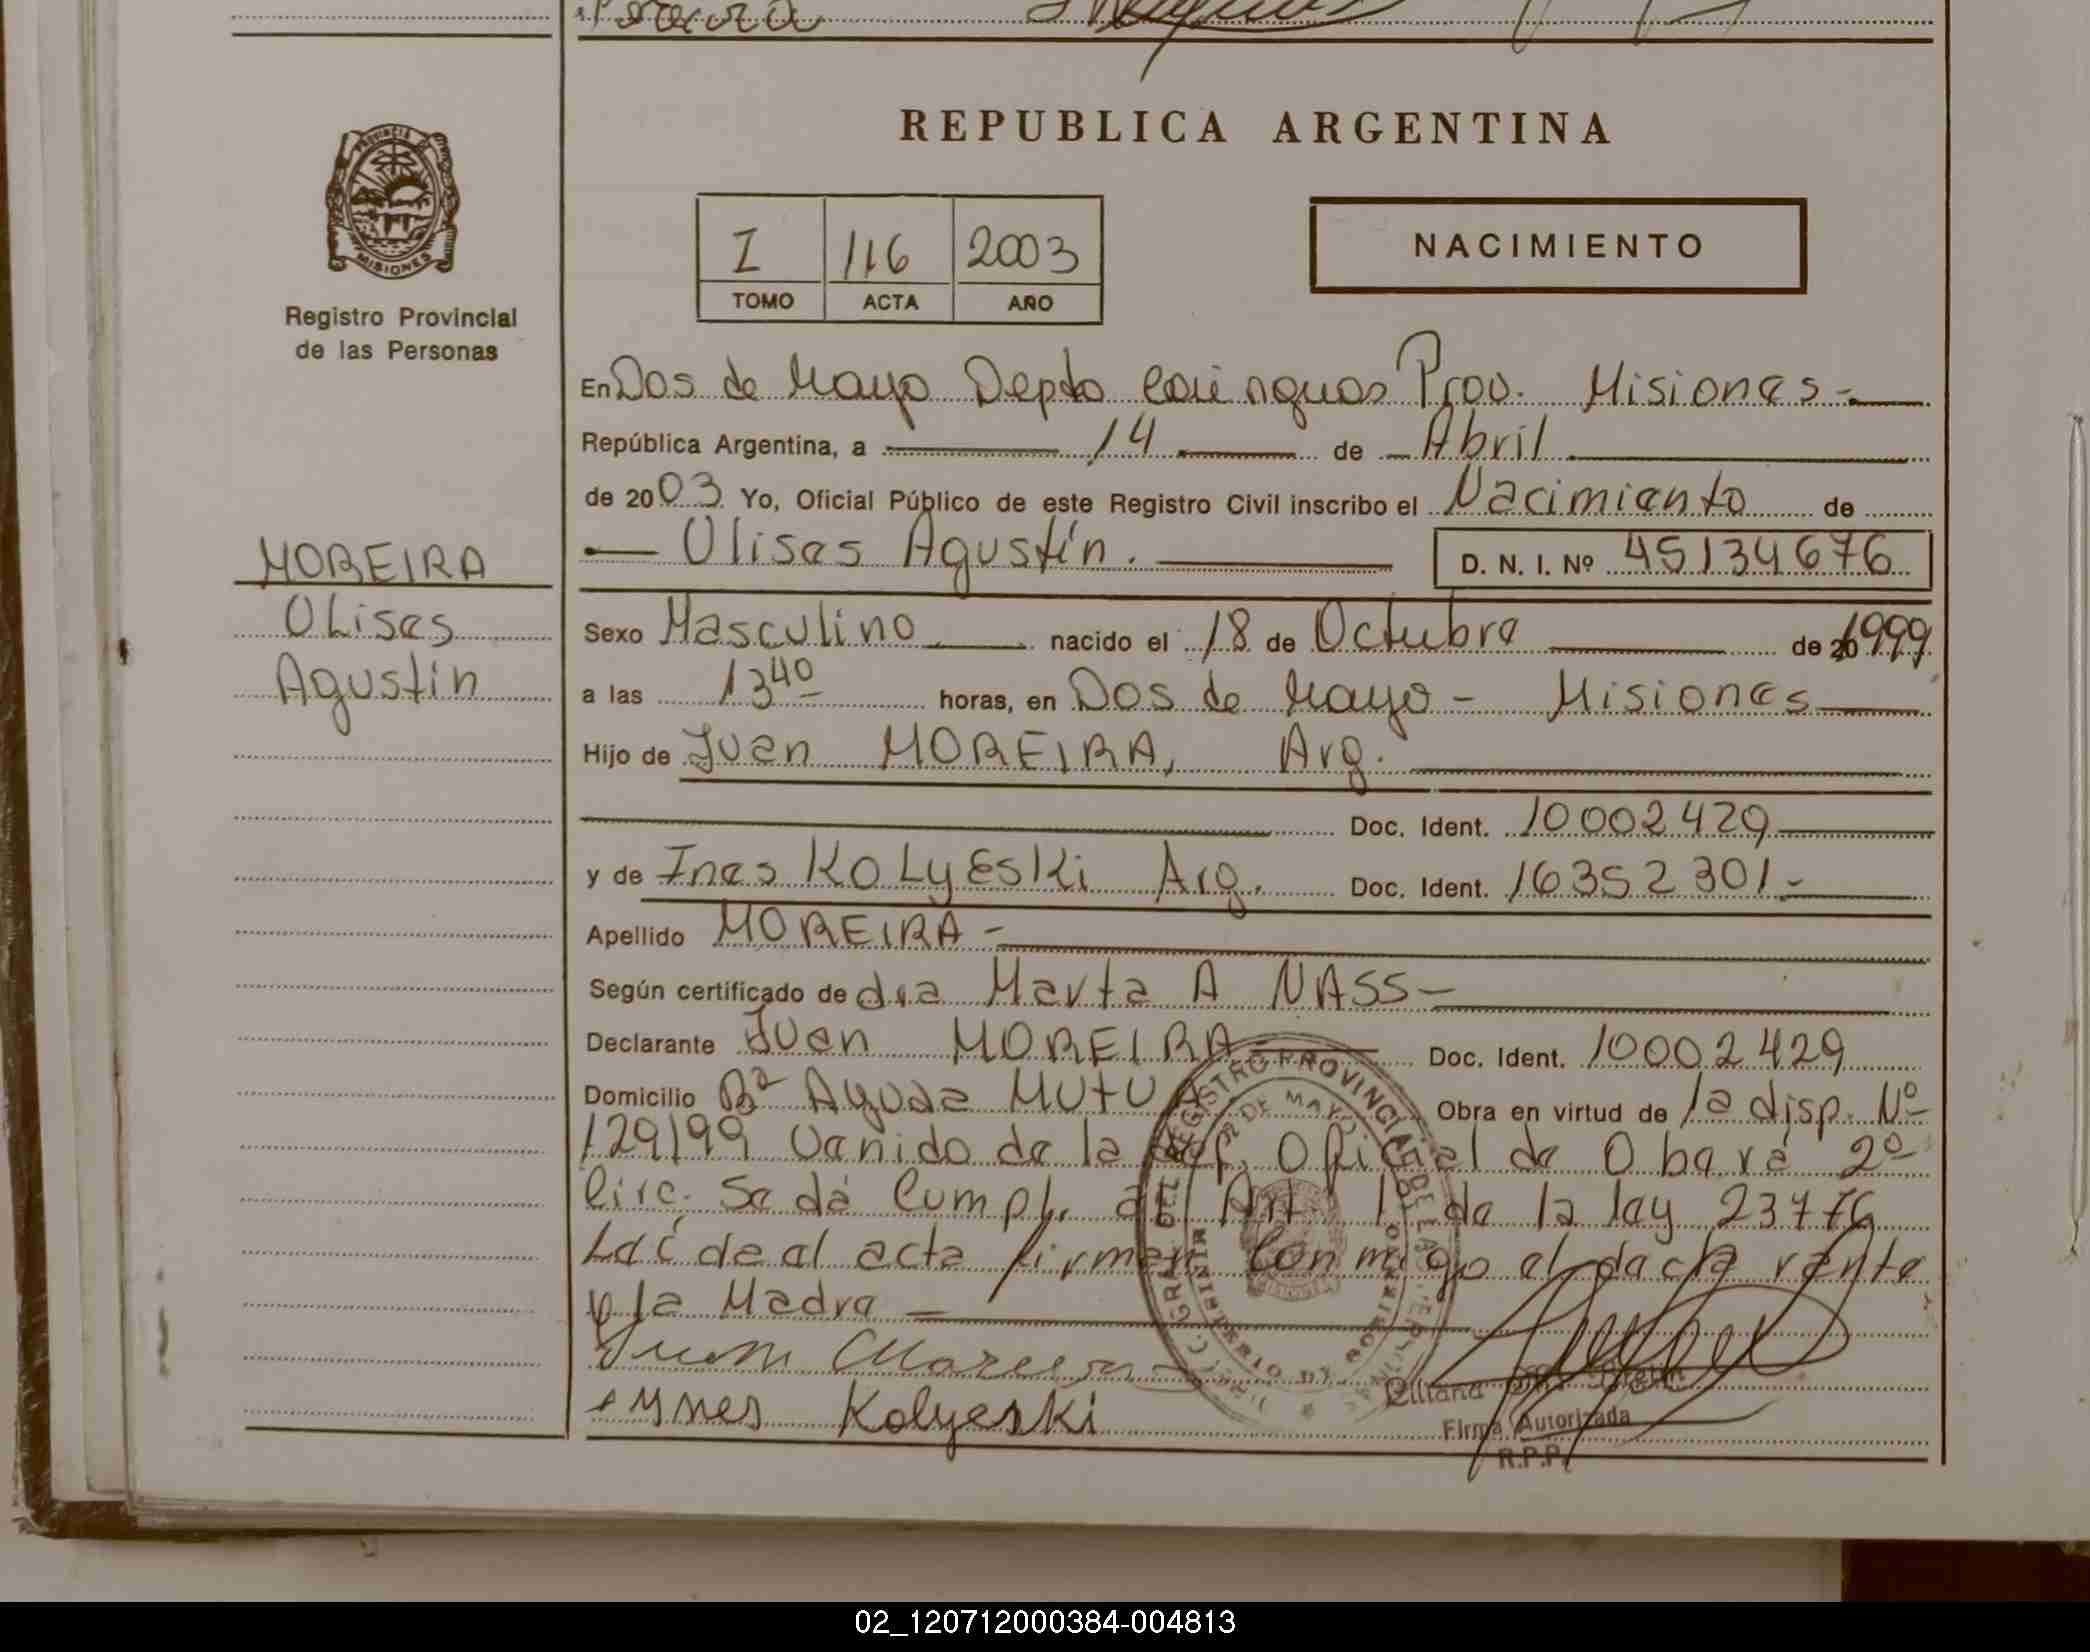 REPUBLICA ARGENTINA
PROVINCIA DE MISIONES
Registro Provincial
de las Personas
I 116 2003
TOMO ACTA AÑO
NACIMIENTO
En Dos de Mayo Depto Cainguas Prov. Misiones-
República Argentina, a 14 de Abril
de 2003 Yo, Oficial Público de este Registro Civil inscribo el Nacimiento de
Ulises Agustín. D. N. I. Nº 45134676
MOREIRA
Ulises
Agustín
Sexo Masculino nacido el 18 de Octubre de 1999
a las 13 40 horas, en Dos de Mayo - Misiones
Hijo de Juan MOREIRA, Arg.
Doc. Ident. 10002429
y de Ines KOLYESKi Arg. Doc. Ident. 16352301.-
Apellido MOREIRA -
Según certificado de dra Marta A NASS-
Declarante Juan MOREIRA Doc. Ident. 10002429
Domicilio Bº Aguda MUTU Obra en virtud de la disp. Nº
129/99 Venido de la Def. Oficial de Oberá 2º
Circ. Se dá Cumpl. al Art. 1º de la ley 23776
Leída el acta firman Conmigo el declarante
y la Madre
Juan Moreira
Ynes Kolyeski
Liliana
Firma Autorizada
R.P.P.
02_120712000384-004813